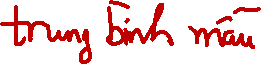 trung bình mẫu